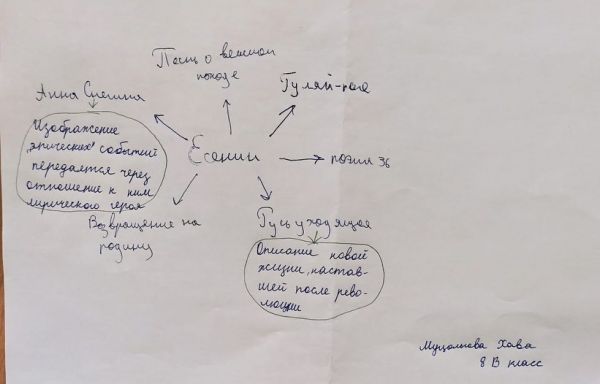 Песнь о великом
походе
Анна Снегина
Гуляй-поле
Изображение
"эпических" событий
передается через
отношение к ним
лирического героя
Есенин
поэма 36
Возвращение на
родину
Русь уходящая
Описание новой
жизни, настав-
шей после рево-
люции
Хава
8 В класс